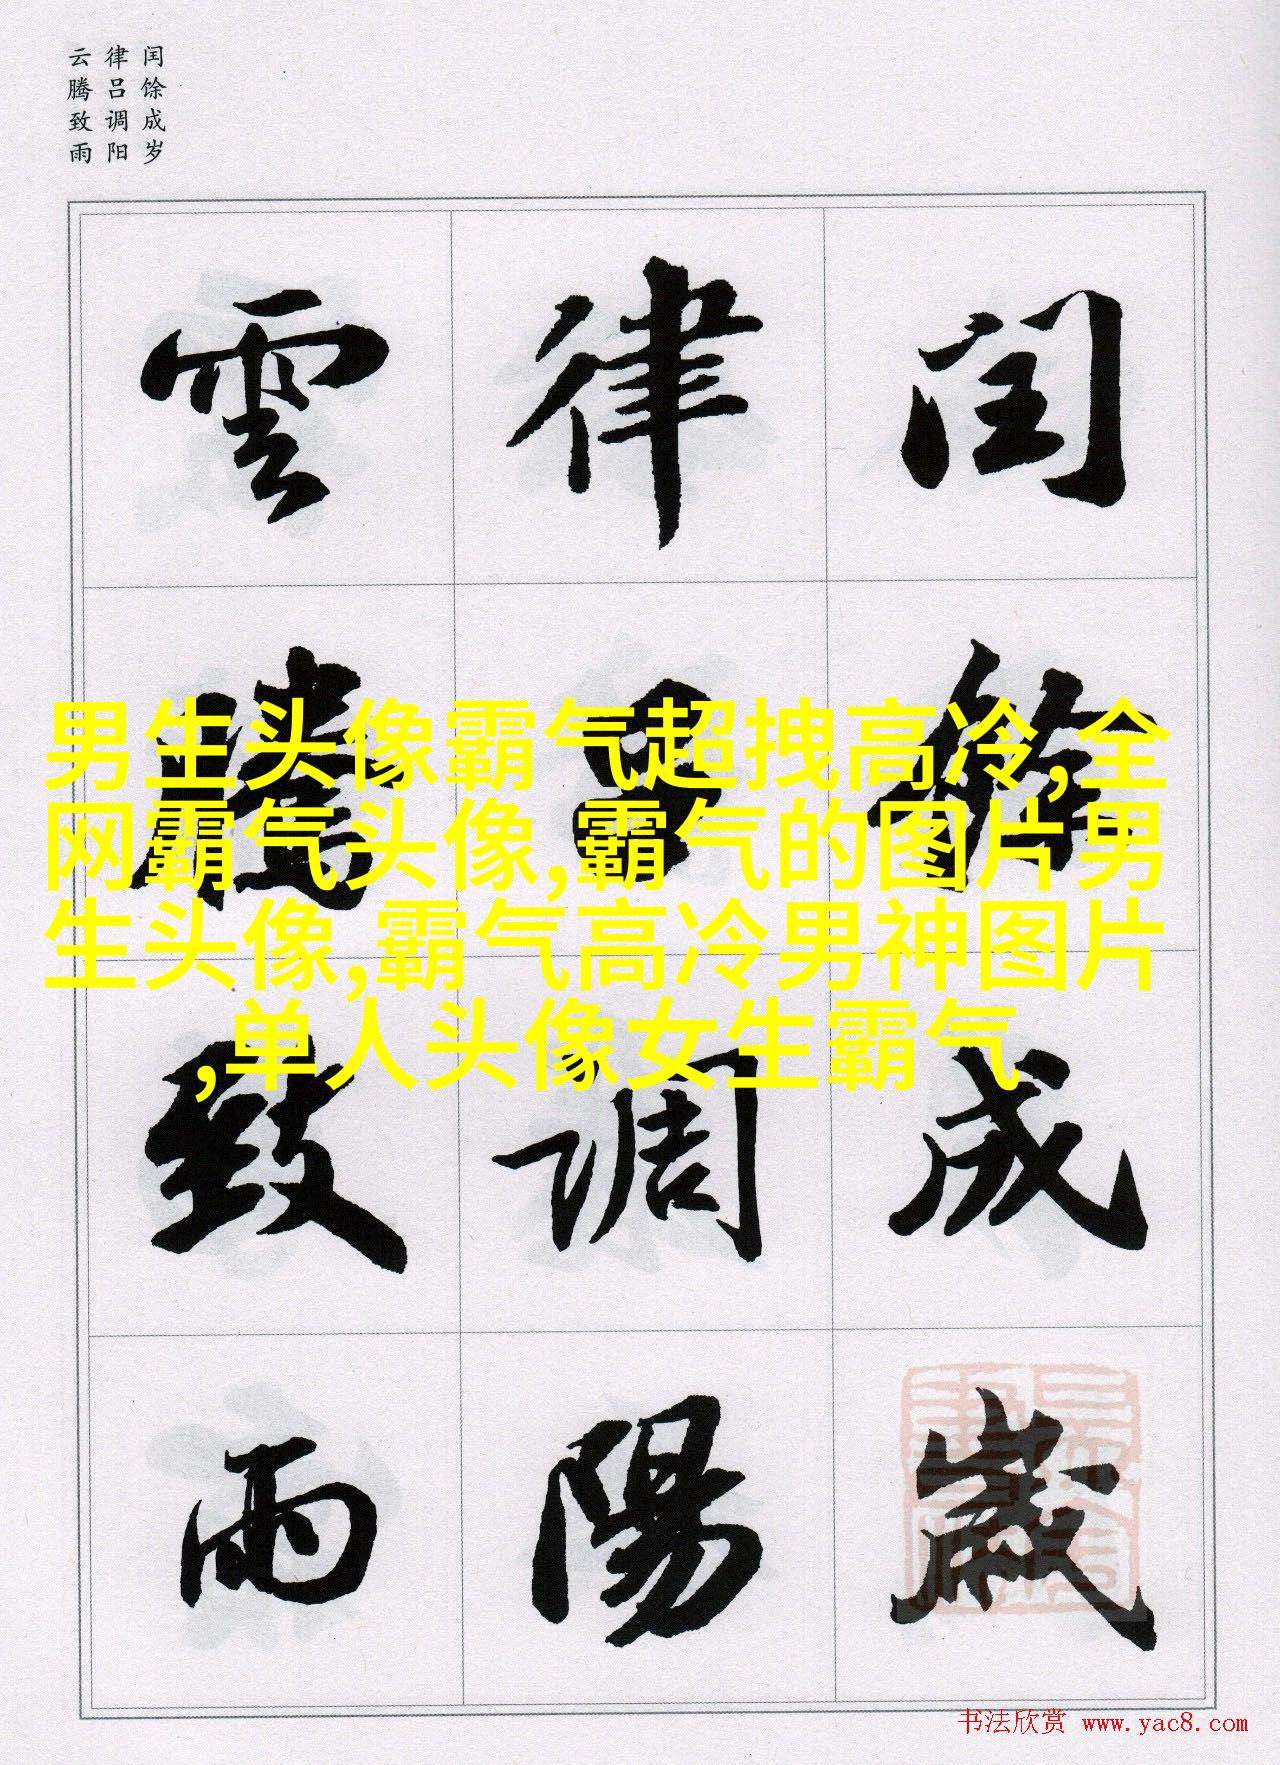 闰馀成岁
律吕调阳
云腾致雨
閏餘成歲
律呂調陽
雲騰致雨
男生头像霸气超拽高冷,全
网霸气头像,霸气的图片男
生头像,霸气高冷男神图片
,单人头像女生霸气
书法欣赏 www.yac8.com